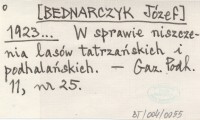 [BEDNARCZYK Józef]
1923... W sprawie niszcze-
nia lasów tatrzańskich i
podhalańskich. — Gaz. Podh.
11, nr 25.
BT/004/0055